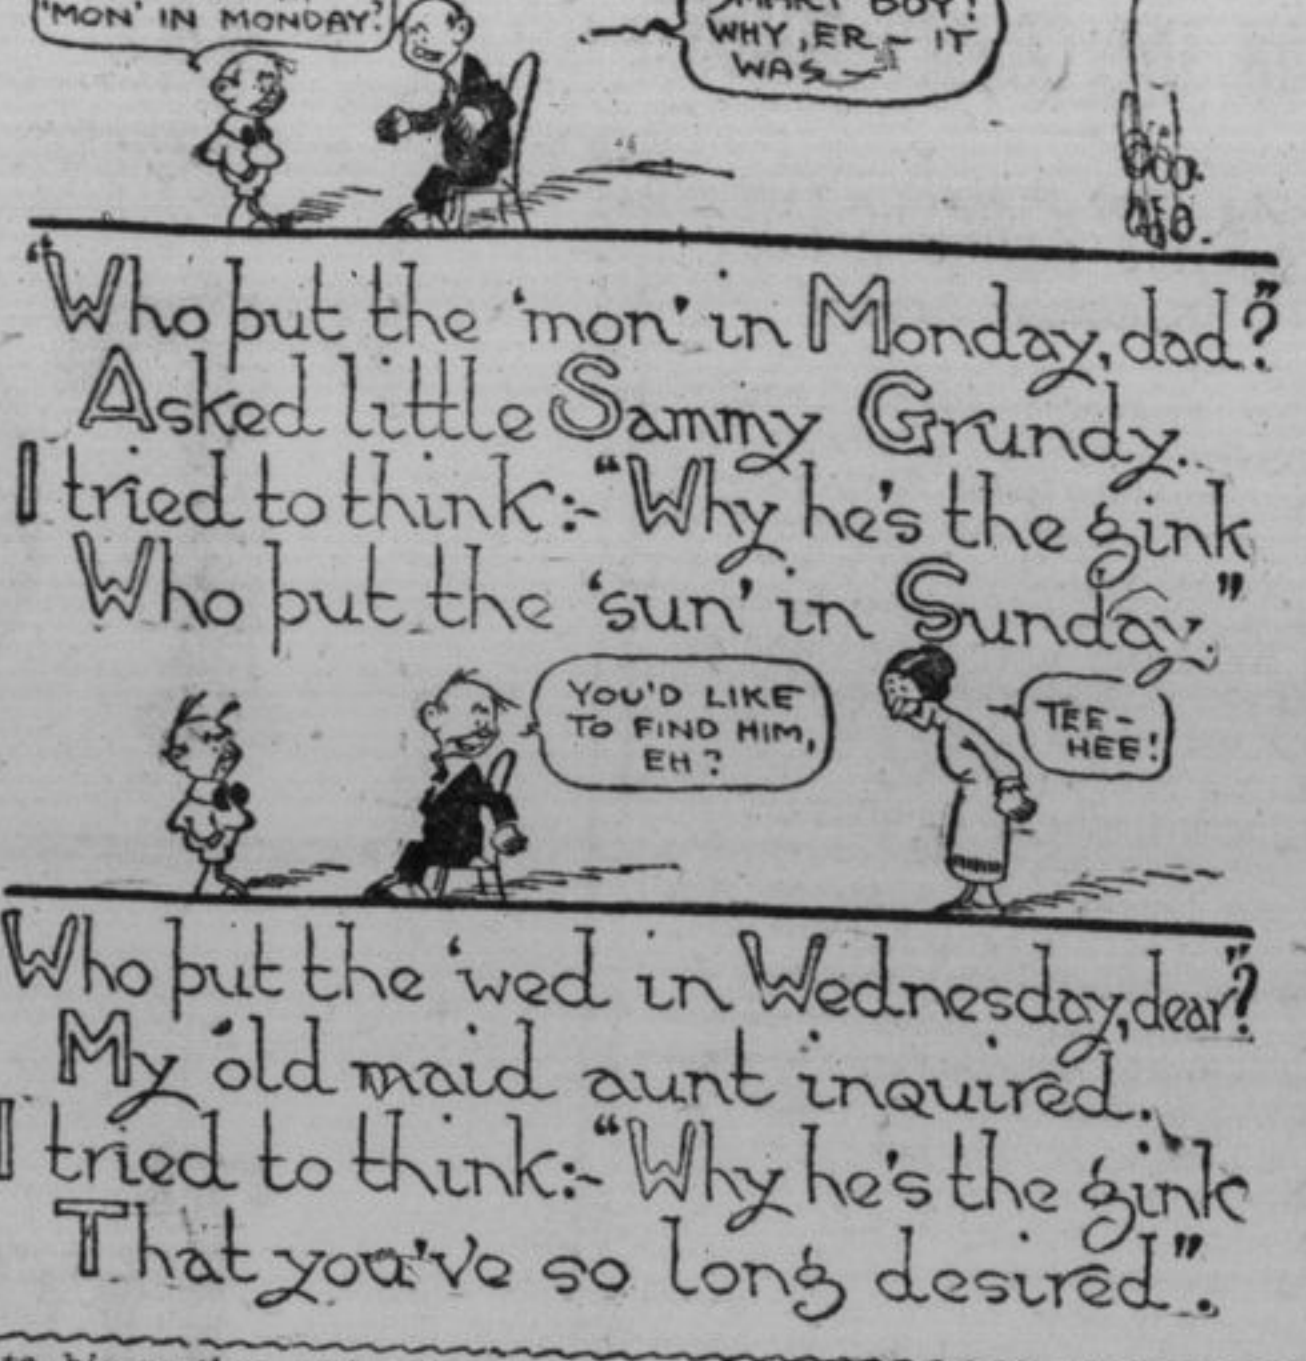 'MON' IN MONDAY?
BOY!
WHY, ER - IT
WAS -
"Who put the 'mon' in Monday, dad?"
Asked little Sammy Grundy.
I tried to think:- "Why he's the gink
Who put the 'sun' in Sunday."
YOU'D LIKE
TO FIND HIM,
EH?
TEE-
HEE!
Who put the 'wed in Wednesday, dear"?
My old maid aunt inquired.
I tried to think:- "Why he's the gink
That you've so long desired".